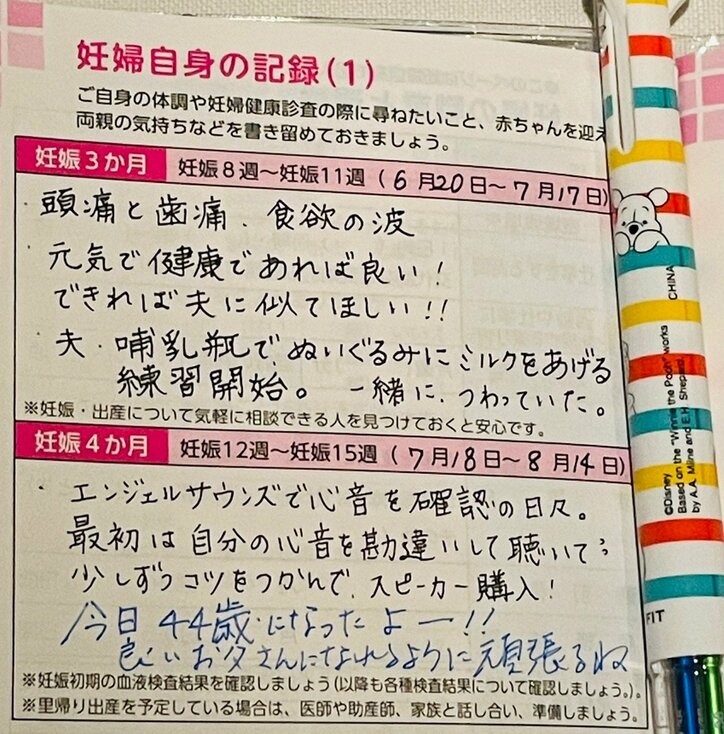 妊婦自身の記録(1)
ご自身の体調や妊婦健康診査の際に尋ねたいこと、赤ちゃんを迎え
両親の気持ちなどを書き留めておきましょう。
妊娠3か月 妊娠8週～妊娠11週 (6月20日～7月17日)
・頭痛と歯痛．食欲の波
・元気で健康であれば良い！
できれば夫に似てほしい！！
・夫・哺乳瓶で、ぬいぐるみにミルクをあげる
練習開始。一緒に、つわっていた。
※妊娠・出産について気軽に相談できる人を見つけておくと安心です。
妊娠4か月 妊娠12週～妊娠15週 (7月18日～8月14日)
・エンジェルサウンズで心音を確認の日々。
最初は自分の心音を勘違いして聴いて
少しずつコツをつかんで、スピーカー購入！
今日44歳になったよー！！
良いお父さんになれるように頑張るね
※妊娠初期の血液検査結果を確認しましょう(以降も各種検査結果について確認しましょう。)。
※里帰り出産を予定している場合は、医師や助産師、家族と話し合い、準備しましょう。
CHINA
©Disney
Based on the "Winnie the Pooh" works
by A.A. Milne and E.H. Shepard
FIT